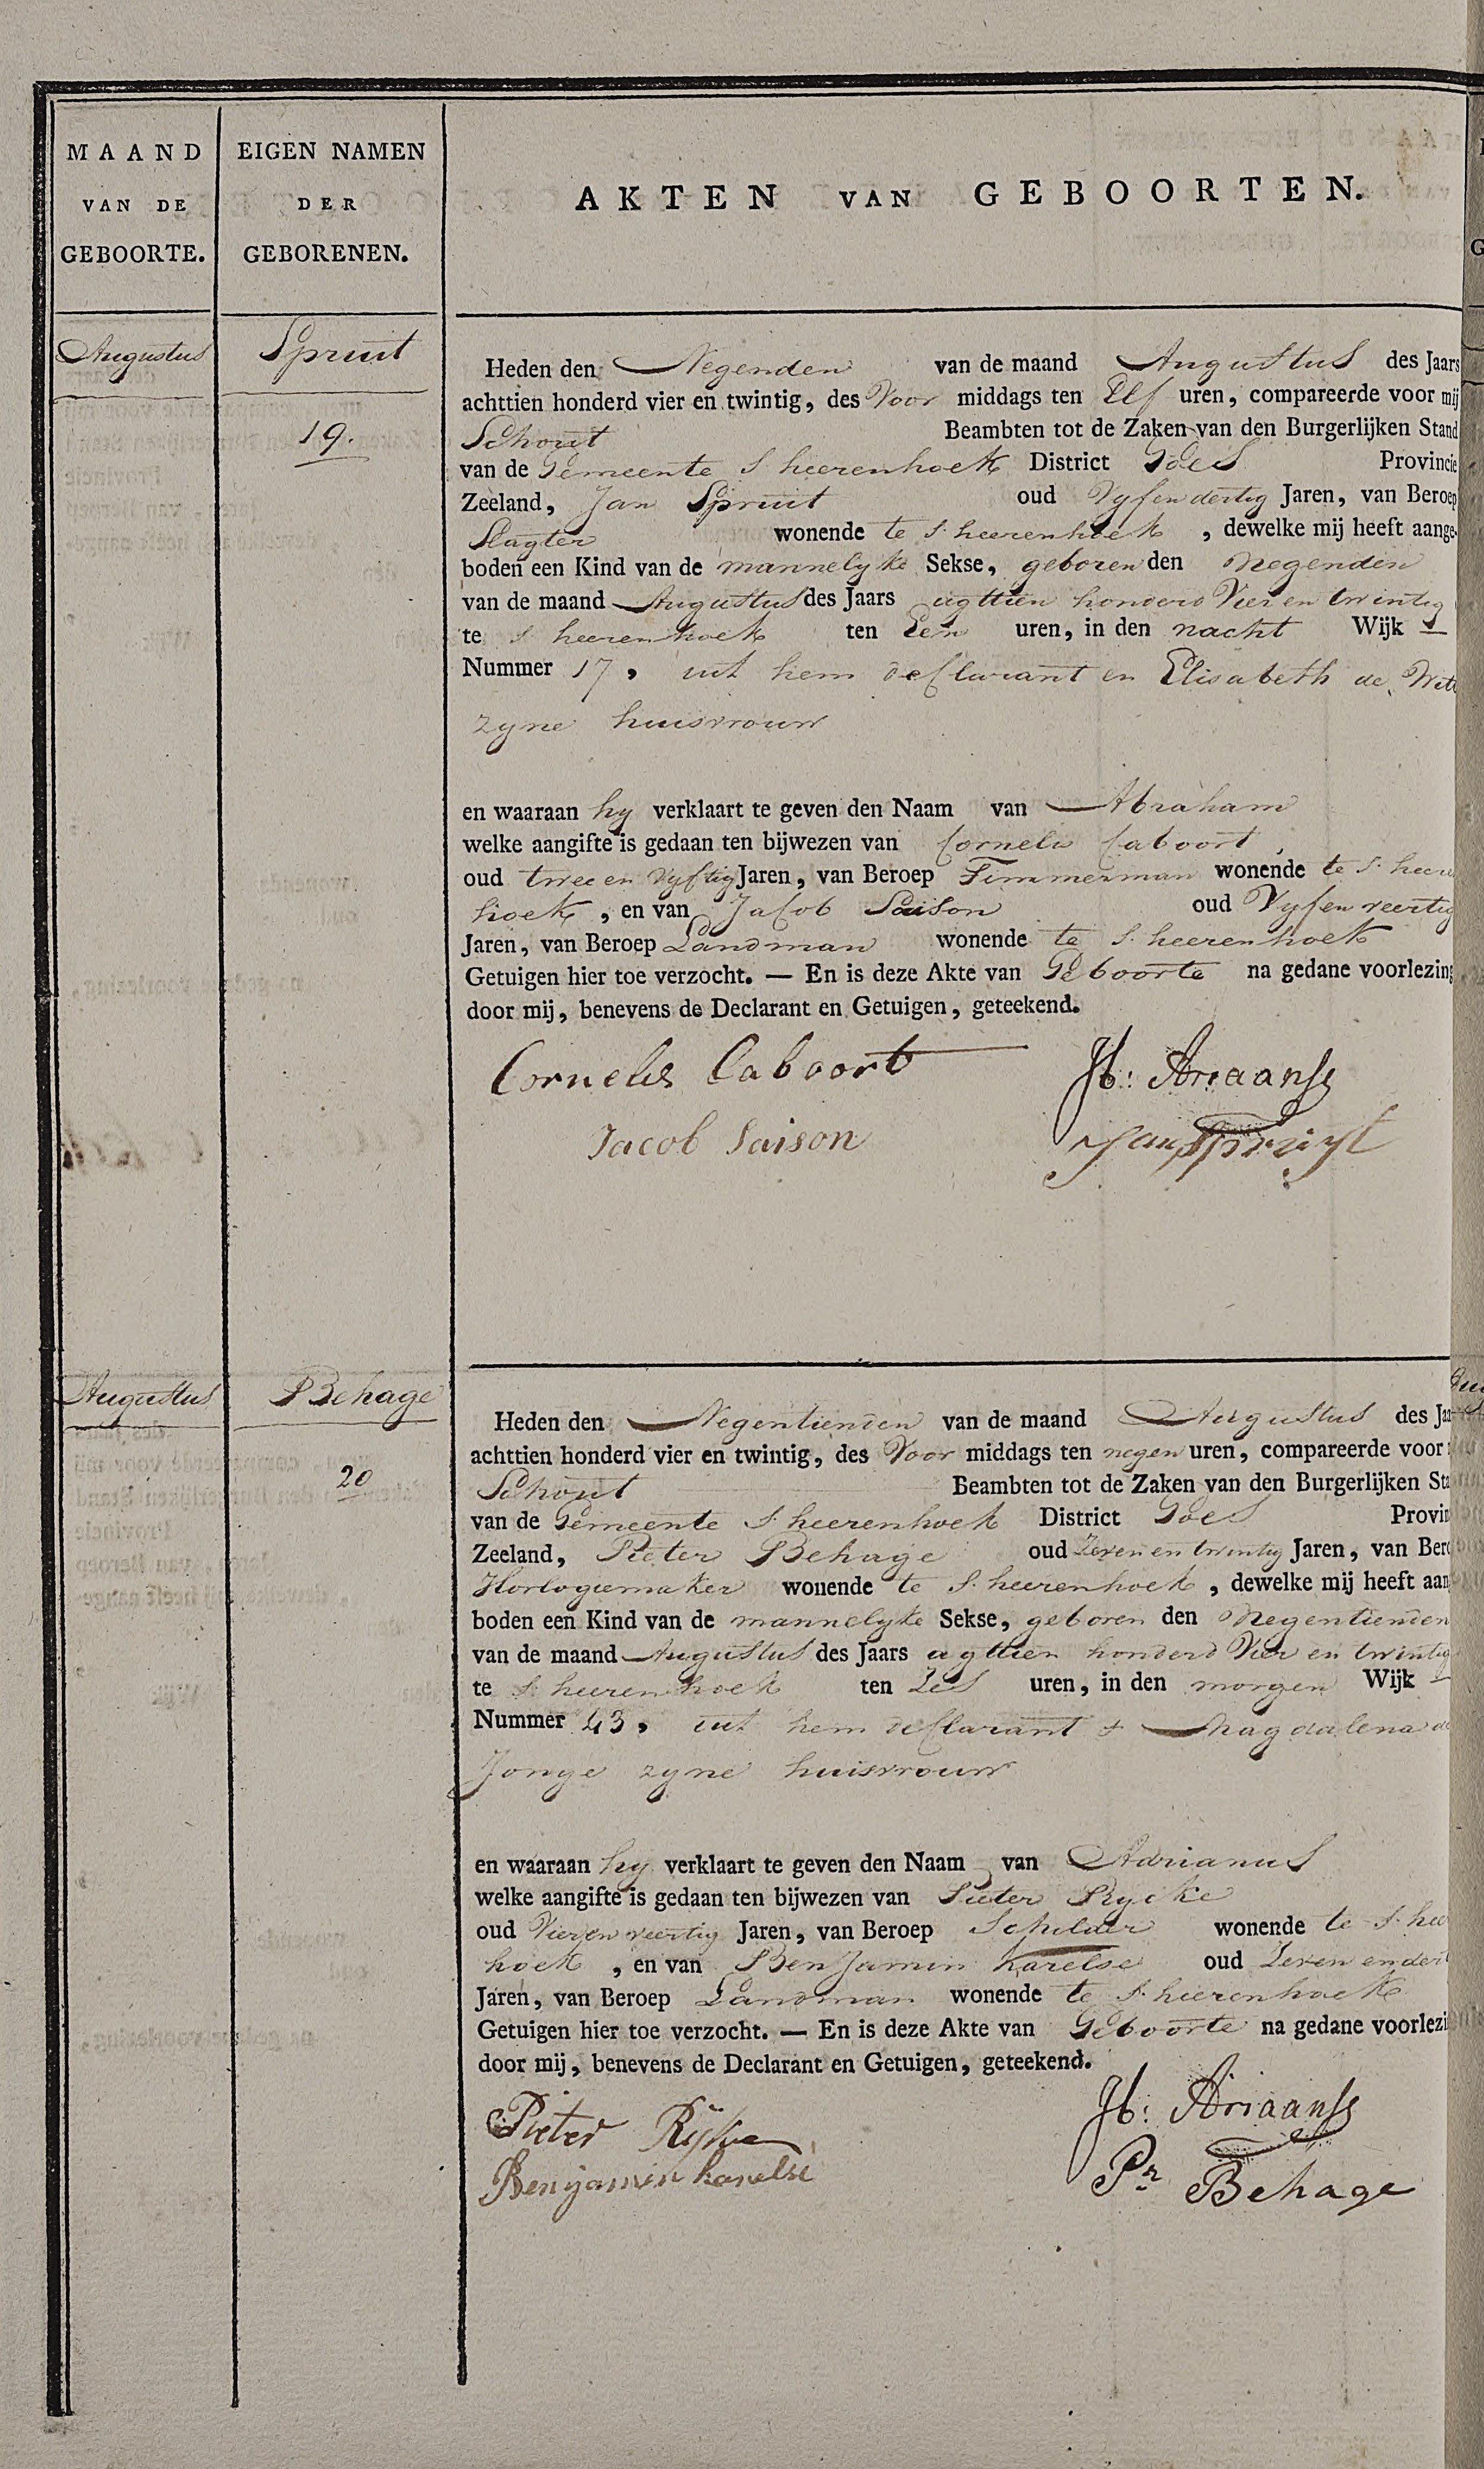 MAAND
VAN DE
GEBOORTE.
EIGEN NAMEN
DER
GEBORENEN.
AKTEN VAN GEBOORTEN.
Augustus
Spruit
19.
Heden den Negenden van de maand Augustus des Jaars
achttien honderd vier en twintig, des Voor middags ten Elf uren, compareerde voor mij
Schout Beambten tot de Zaken van den Burgerlijken Stand
van de Gemeente S heerenhoek District Goes Provincie
Zeeland, Jan Spruit oud Vyf en dertig Jaren, van Beroep
Slagter wonende te S. heerenhoek, dewelke mij heeft aange-
boden een Kind van de mannelyke Sekse, geboren den Negenden
van de maand Augustus des Jaars agttien honderd Vier en twintig
te S heerenhoek ten Een uren, in den nacht Wijk —
Nummer 17, uit hem declarant en Elisabeth de Witt
zyne huisvrouw
en waaraan hy verklaart te geven den Naam van Abraham
welke aangifte is gedaan ten bijwezen van Cornelis Caboort,
oud twee en vyftig Jaren, van Beroep Timmerman wonende te S. heere
hoek, en van Jacob Saison oud Vyf en veertig
Jaren, van Beroep Landman wonende te S. heerenhoek
Getuigen hier toe verzocht. — En is deze Akte van Geboorte na gedane voorlezing
door mij, benevens de Declarant en Getuigen, geteekend.
Cornelis Caboort Jb: Ariaanse
Jacob Saison Jan Spruijt
Augustus
Behage
20
Heden den Negentienden van de maand Augustus des Jaa
achttien honderd vier en twintig, des Voor middags ten negen uren, compareerde voor
Schout Beambten tot de Zaken van den Burgerlijken Sta
van de Gemeente S heerenhoek District Goes Provin
Zeeland, Pieter Behage oud Zeven en twintig Jaren, van Bero
Horlogiemaker wonende te S. heerenhoek, dewelke mij heeft aan
boden een Kind van de mannelyke Sekse, geboren den Negentienden
van de maand Augustus des Jaars agttien honderd Vier en twintig
te S heerenhoek ten Zes uren, in den morgen Wijk —
Nummer 43, uit hem declarant & Magdalena de
Jonge zyne huisvrouw
en waaraan hy verklaart te geven den Naam van Adrianus
welke aangifte is gedaan ten bijwezen van Pieter Rycke
oud Vier en veertig Jaren, van Beroep Schilder wonende te S. hee
hoek, en van Benjamin Karelse oud Zeven en dert
Jaren, van Beroep Landman wonende te S. heerenhoek
Getuigen hier toe verzocht. — En is deze Akte van Geboorte na gedane voorlezi
door mij, benevens de Declarant en Getuigen, geteekend.
Pieter Rijke Jb: Ariaanse
Benyamin karelse Pr Behage